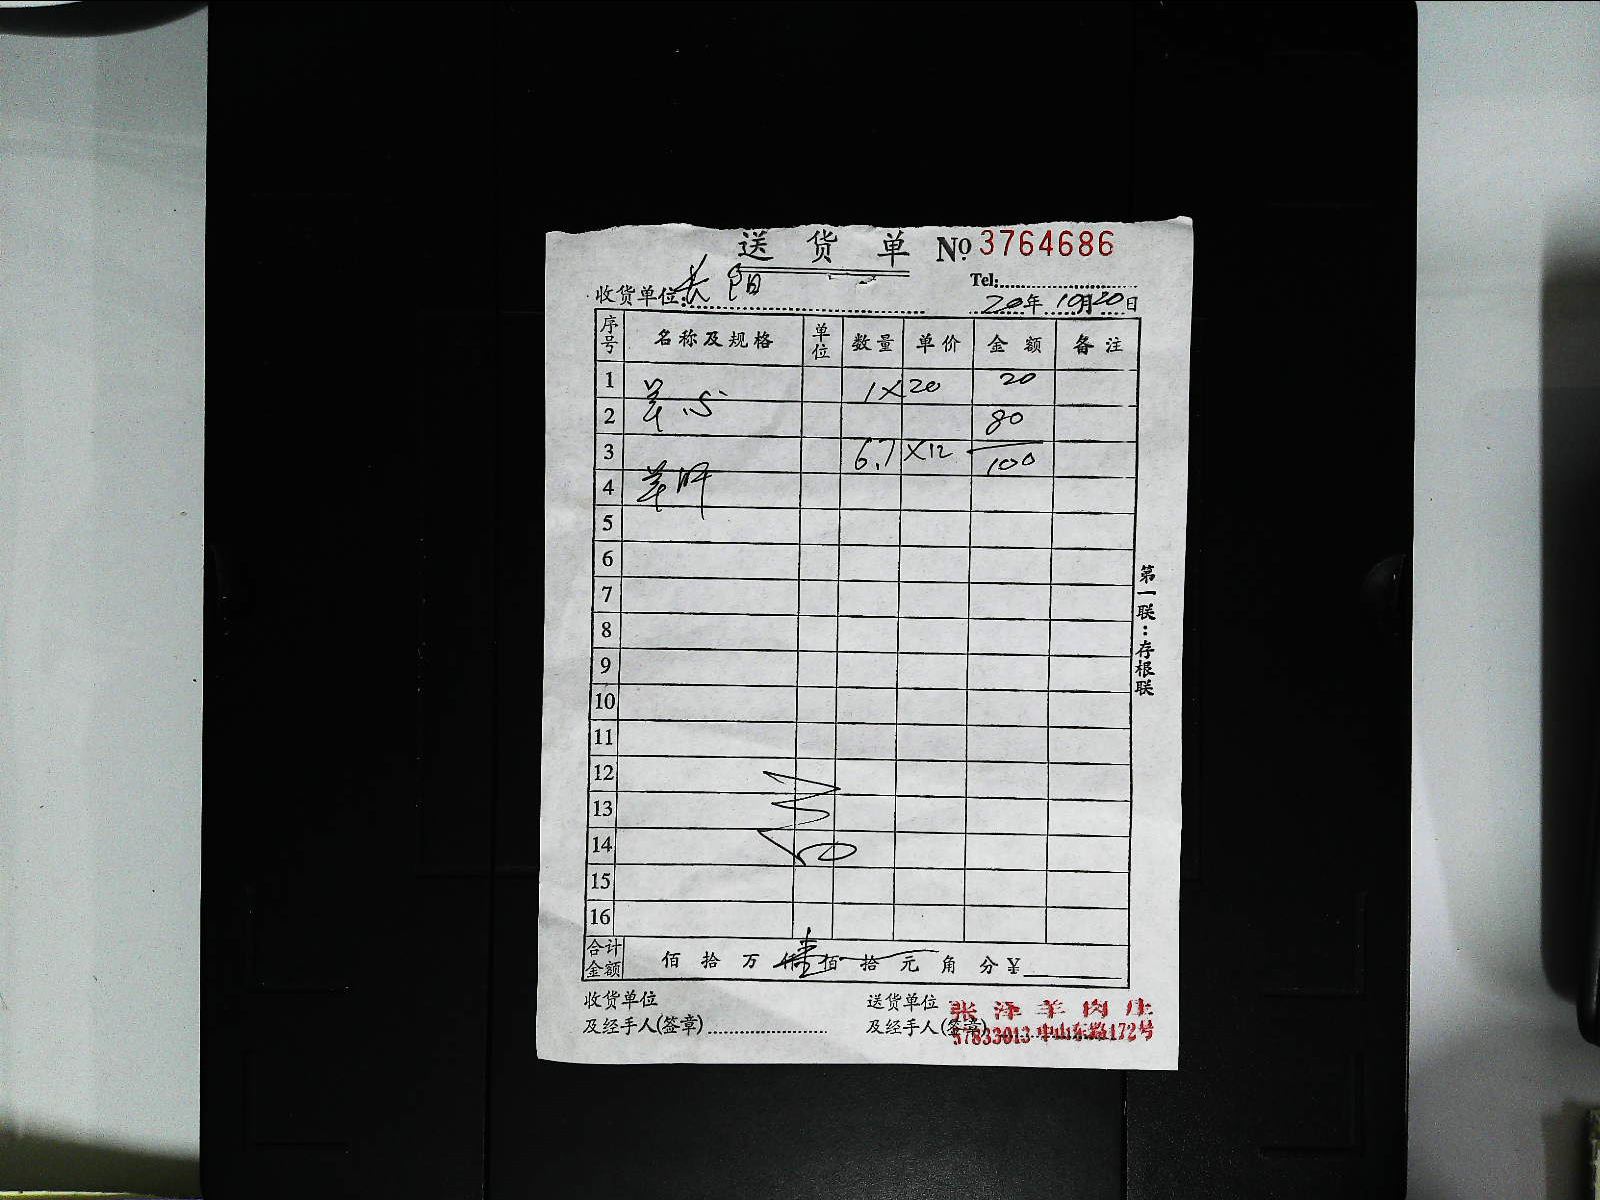 送货单 № 3764686
Tel:
收货单位: 长阳 20年10月20日
序号 名称及规格 单位 数量 单价 金额 备注
1 羊心 1×20 20
2 80
3 6.7×12 100
4 羊肝
5
6
7
8
9
10
11
12
13
14
15
16
合计金额 佰 拾 万 仟 壹佰 拾 元 角 分 ¥
收货单位 送货单位 张泽羊肉庄
及经手人(签章) 及经手人(签章) 57833013 中山东路172号
第一联:存根联